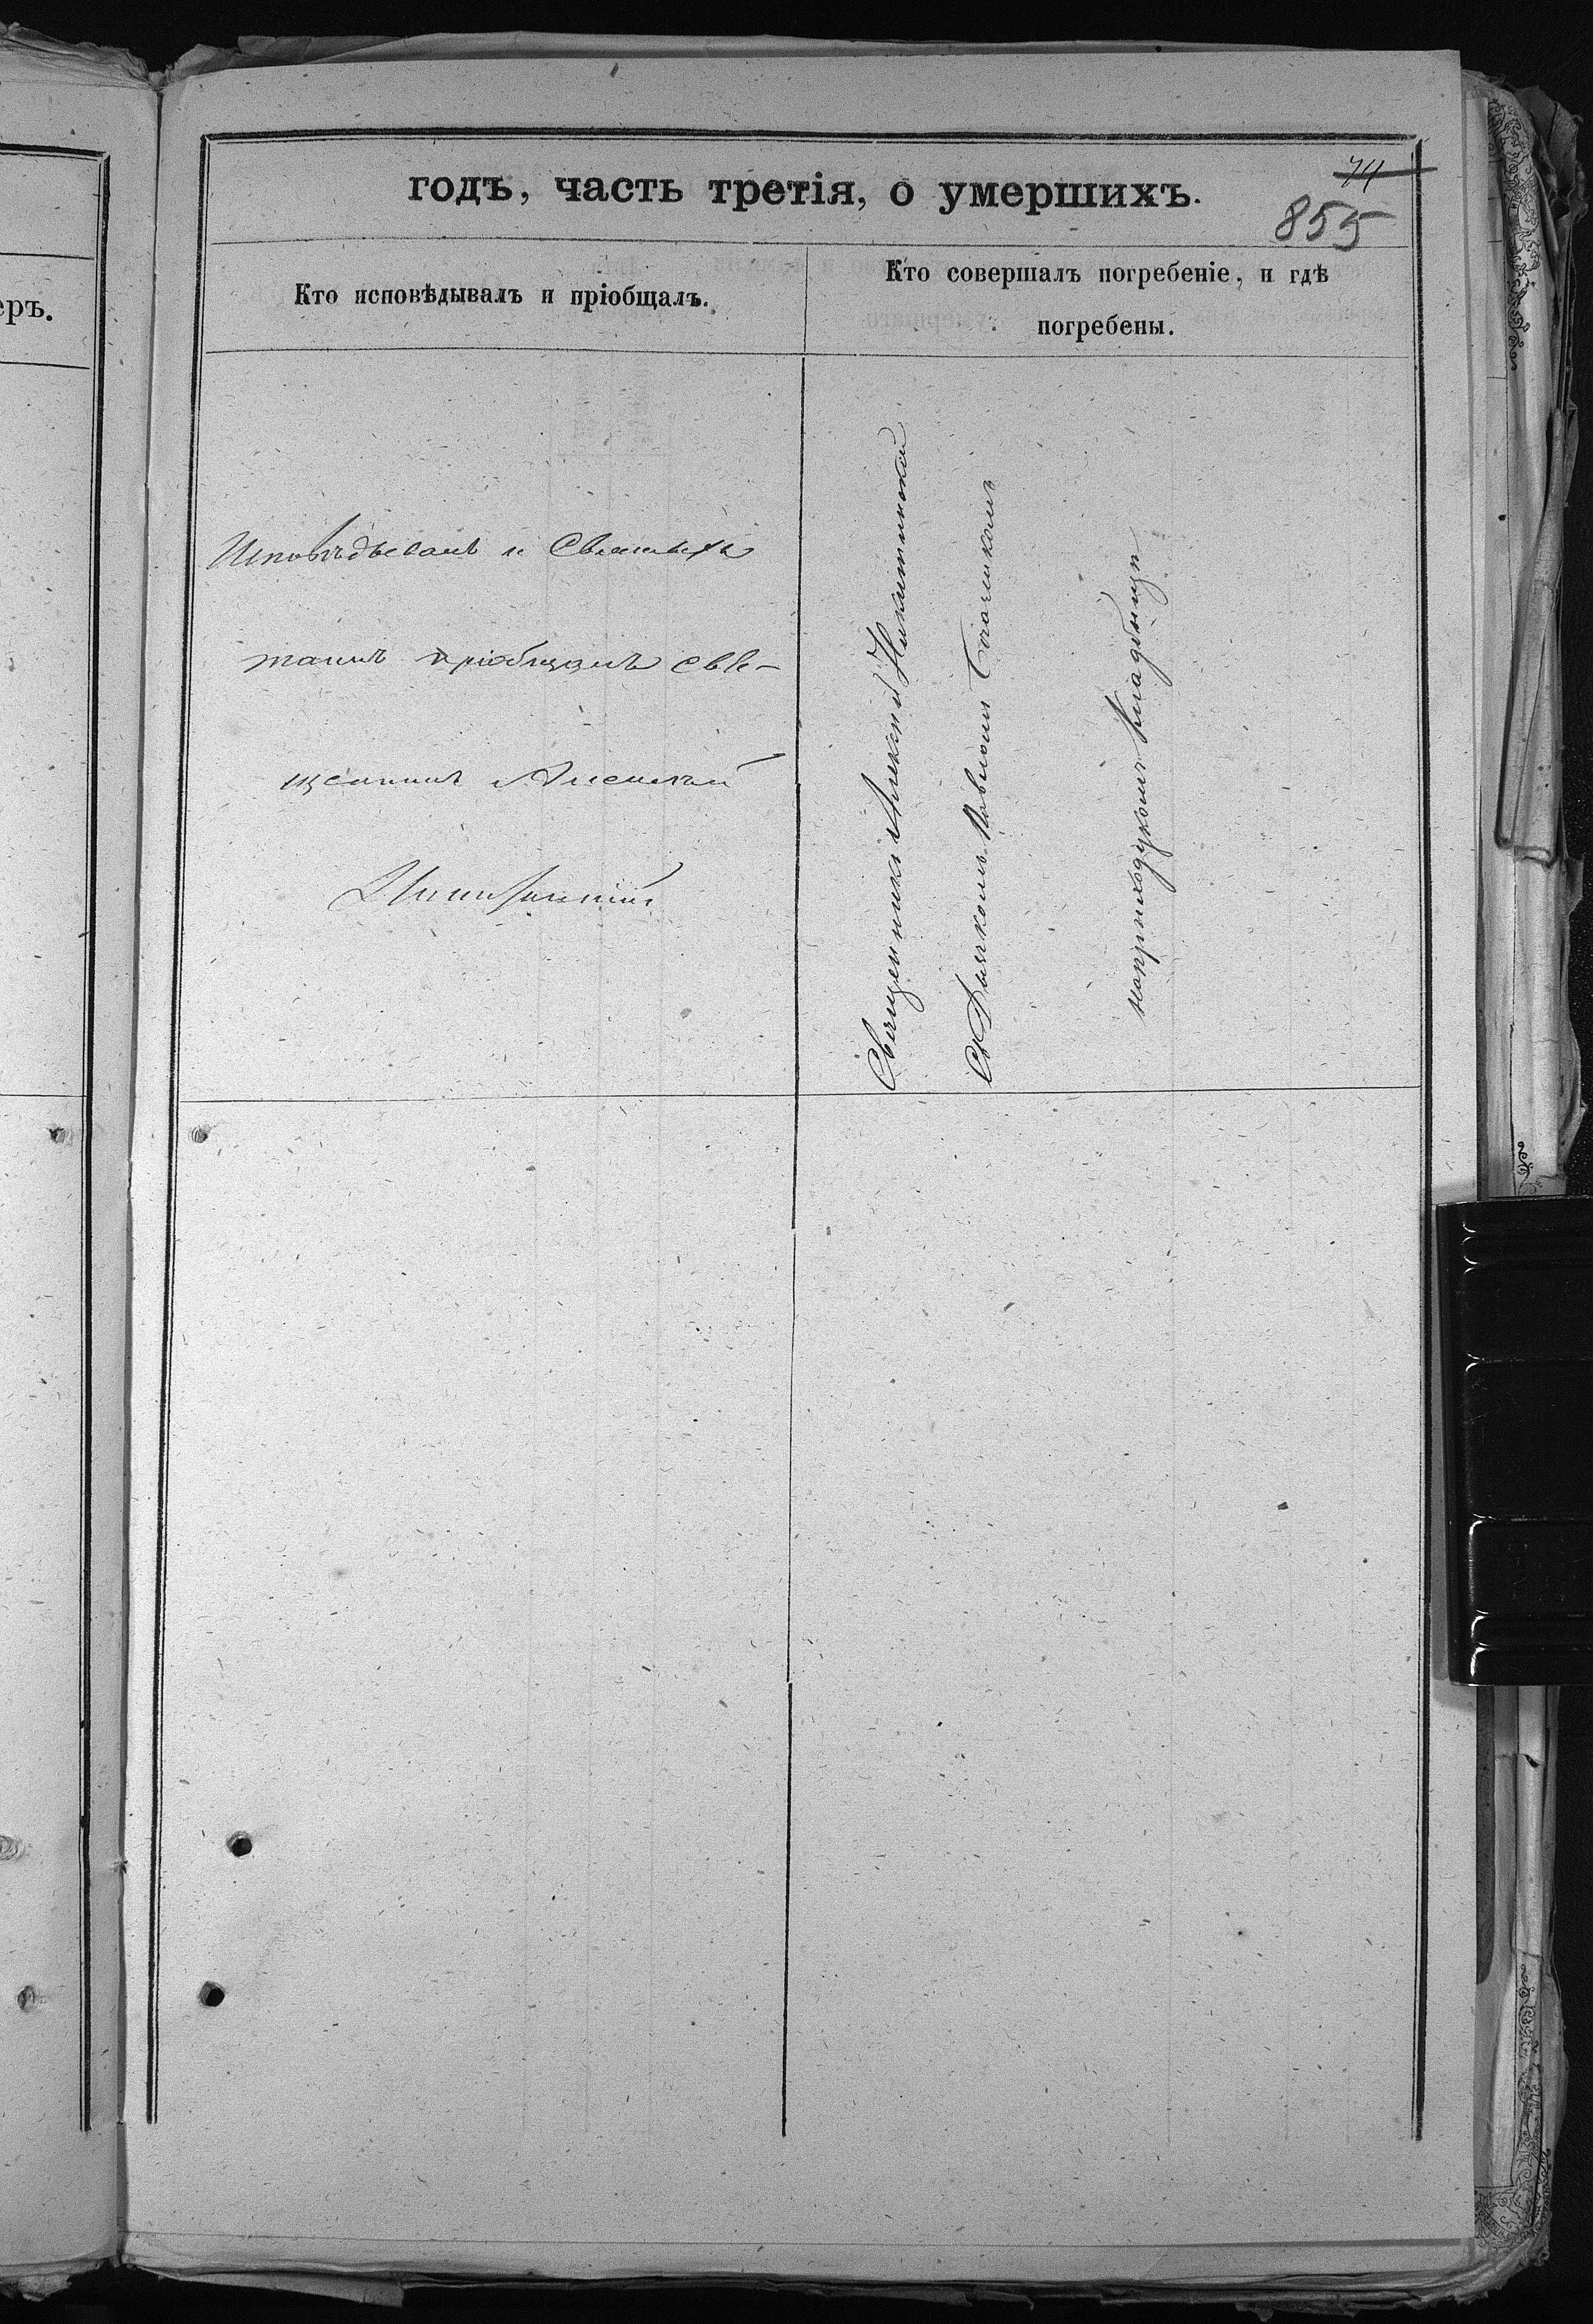 еръ.
годъ, часть третія, о умершихъ.
74
855
Кто исповѣдывалъ и пріобщалъ.
Кто совершалъ погребеніе, и гдѣ
погребены.
Исповѣдывалъ и Святыхъ
таинъ пріобщалъ Свя-
щенникъ Алексѣй
Никитинскій
Священникъ Алексѣй Никитинскій
Съ Дьячкомъ Павломъ
на приходскомъ кладбищѣ